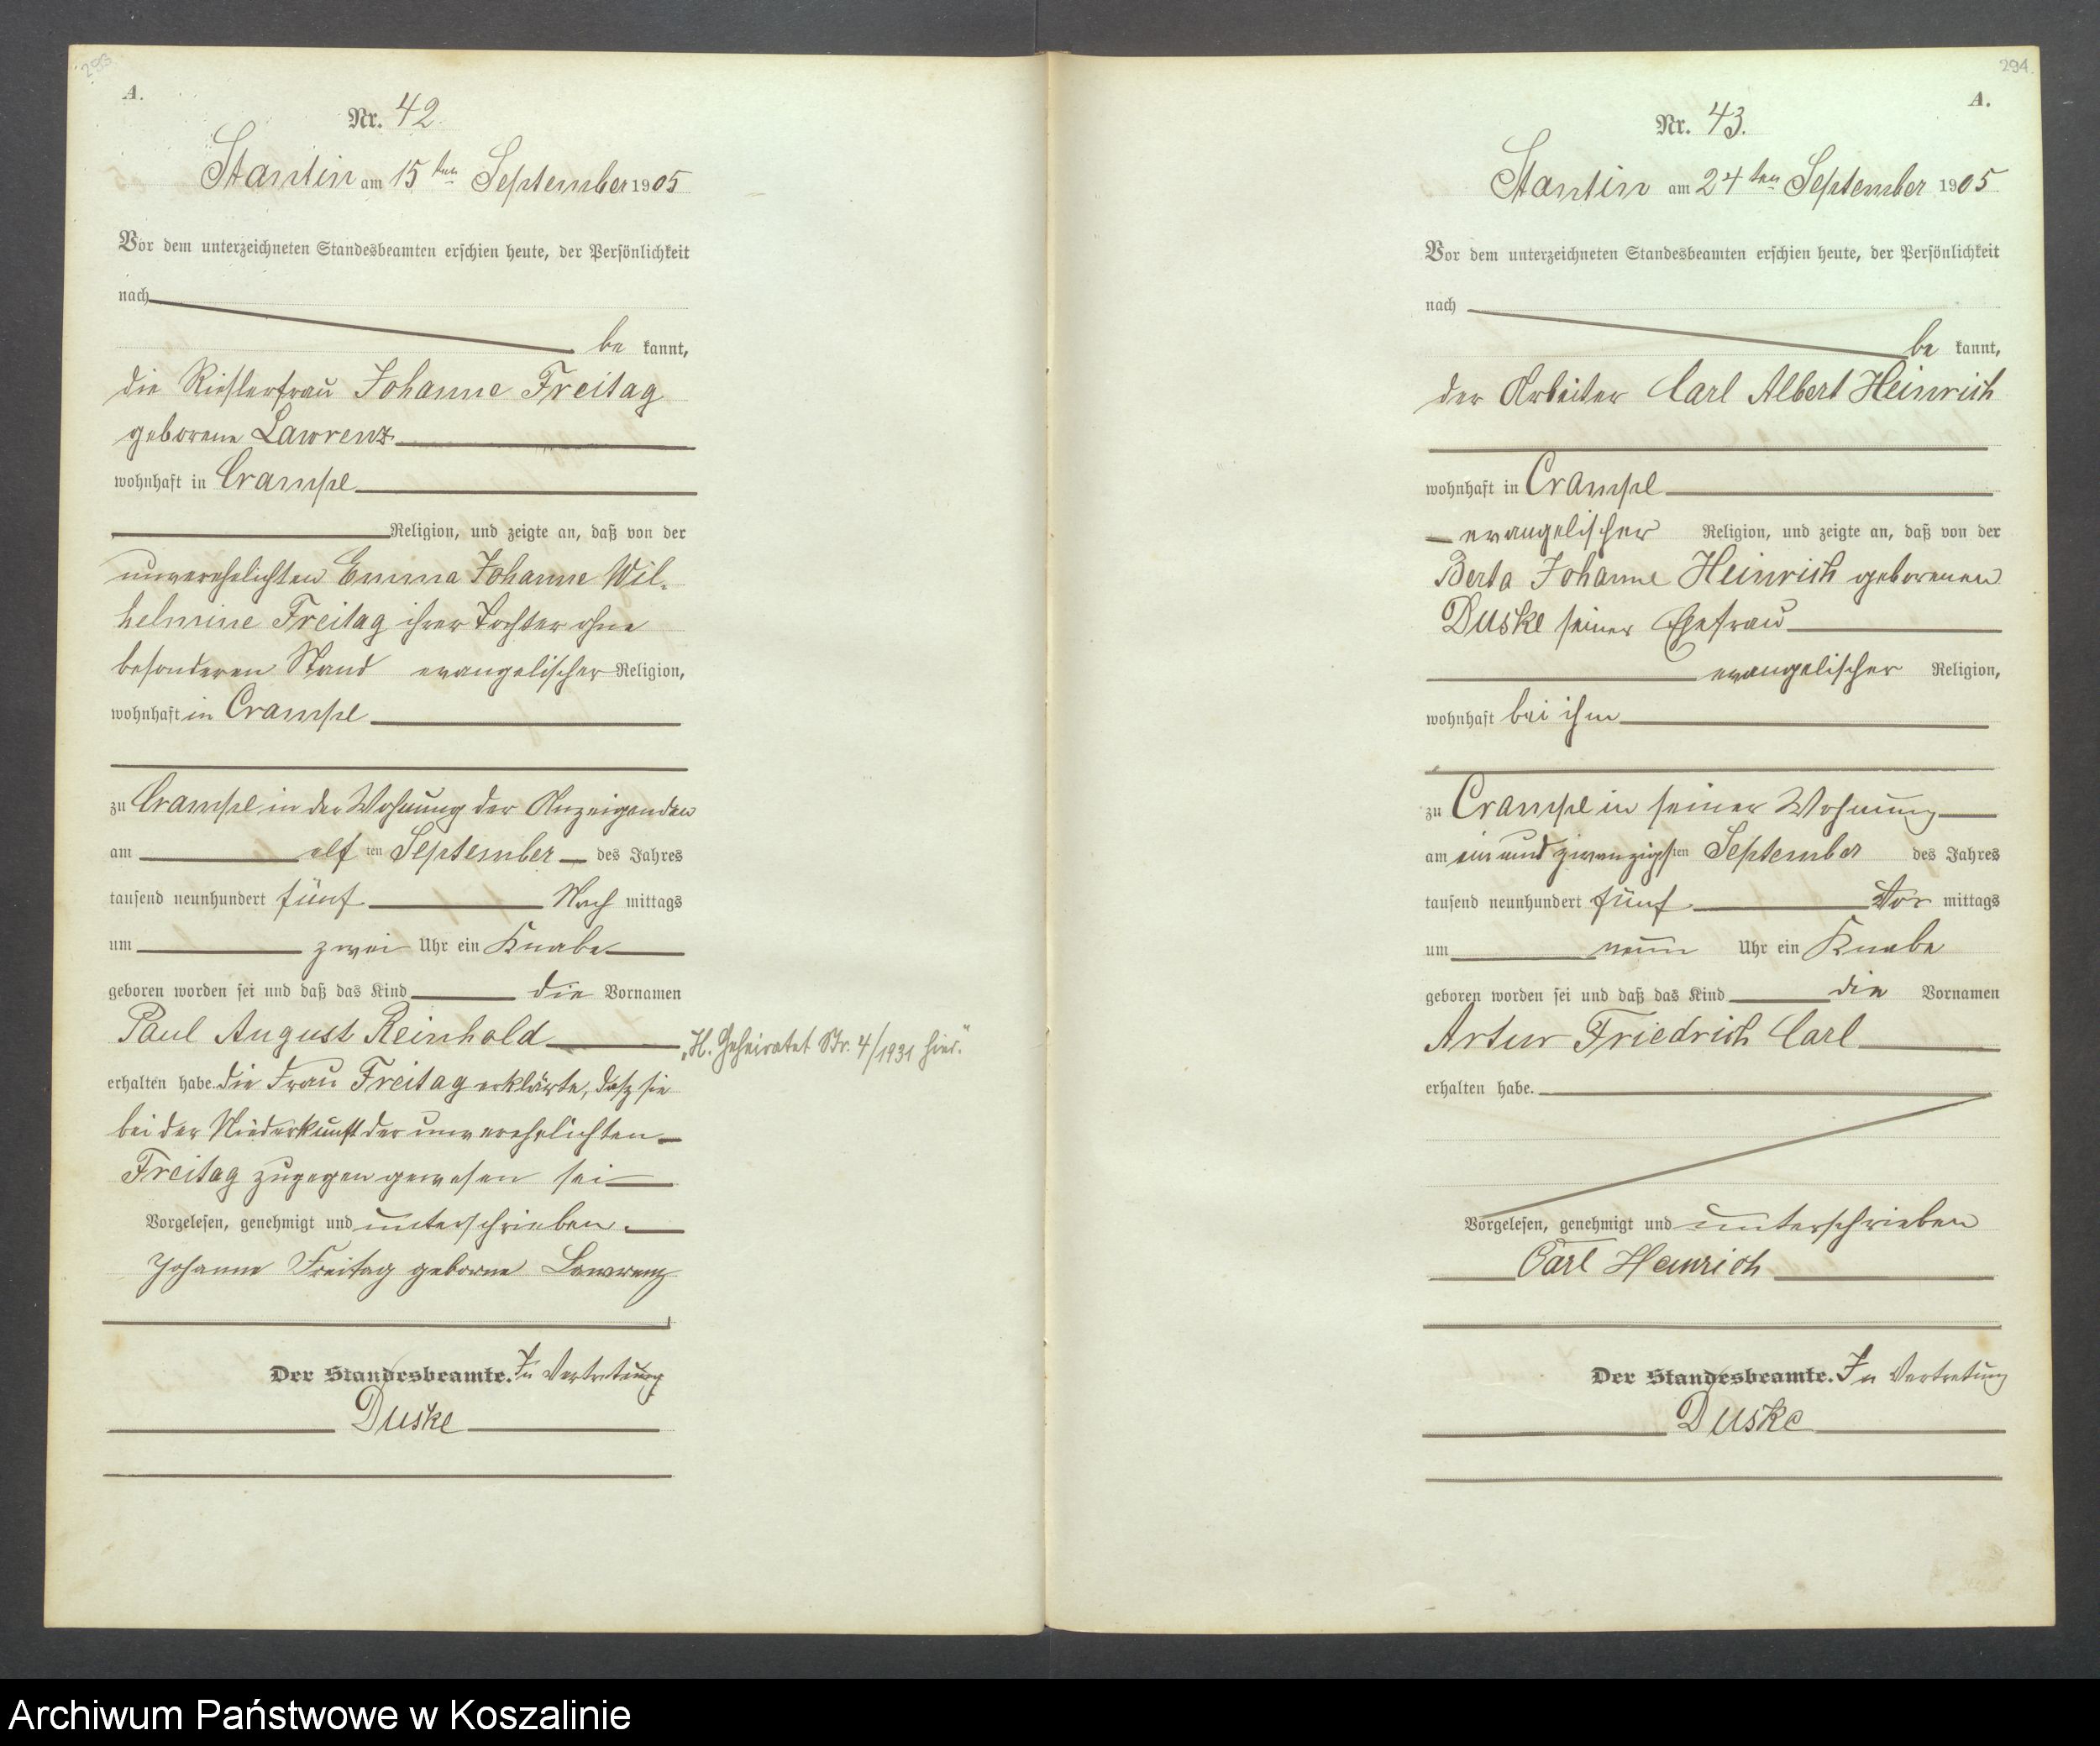 293
A.
Nr. 42.
Stantin am 15ten September 1905
Vor dem unterzeichneten Standesbeamten erschien heute, der Persönlichkeit
nach
be kannt,
die Rieslerfrau Johanne Freitag
geborene Lawrenz
wohnhaft in Crampe
Religion, und zeigte an, daß von der
unverehelichten Emma Johanne Wil-
helmine Freitag ihrer Tochter ohne
besonderen Stand evangelischer Religion,
wohnhaft in Crampe
zu Crampe in der Wohnung der Anzeigenden
am elf ten September des Jahres
tausend neunhundert fünf Nach mittags
um zwei Uhr ein Knabe
geboren worden sei und daß das Kind die Vornamen
Paul August Reinhold
„H. Geheiratet Nr. 4/1931 hier."
erhalten habe. die Frau Freitag erklärte, daß sie
bei der Niederkunft der unverehelichten
Freitag zugegen gewesen sei
Vorgelesen, genehmigt und unterschrieben.
Johanne Freitag geborne Lawrenz
Der Standesbeamte. In Vertretung
Duske
294.
A.
Nr. 43.
Stantin am 24ten September 1905
Vor dem unterzeichneten Standesbeamten erschien heute, der Persönlichkeit
nach
be kannt,
der Arbeiter Carl Albert Heinrich
wohnhaft in Crampe
evangelischer Religion, und zeigte an, daß von der
Berta Johanne Heinrich geborenen
Duske seiner Ehefrau
evangelischer Religion,
wohnhaft bei ihm
zu Crampe in seiner Wohnung
am ein und zwanzigsten September des Jahres
tausend neunhundert fünf Vor mittags
um neun Uhr ein Knabe
geboren worden sei und daß das Kind die Vornamen
Artur Friedrich Carl
erhalten habe.
Vorgelesen, genehmigt und unterschrieben
Carl Heinrich
Der Standesbeamte. In Vertretung
Duske
Archiwum Państwowe w Koszalinie